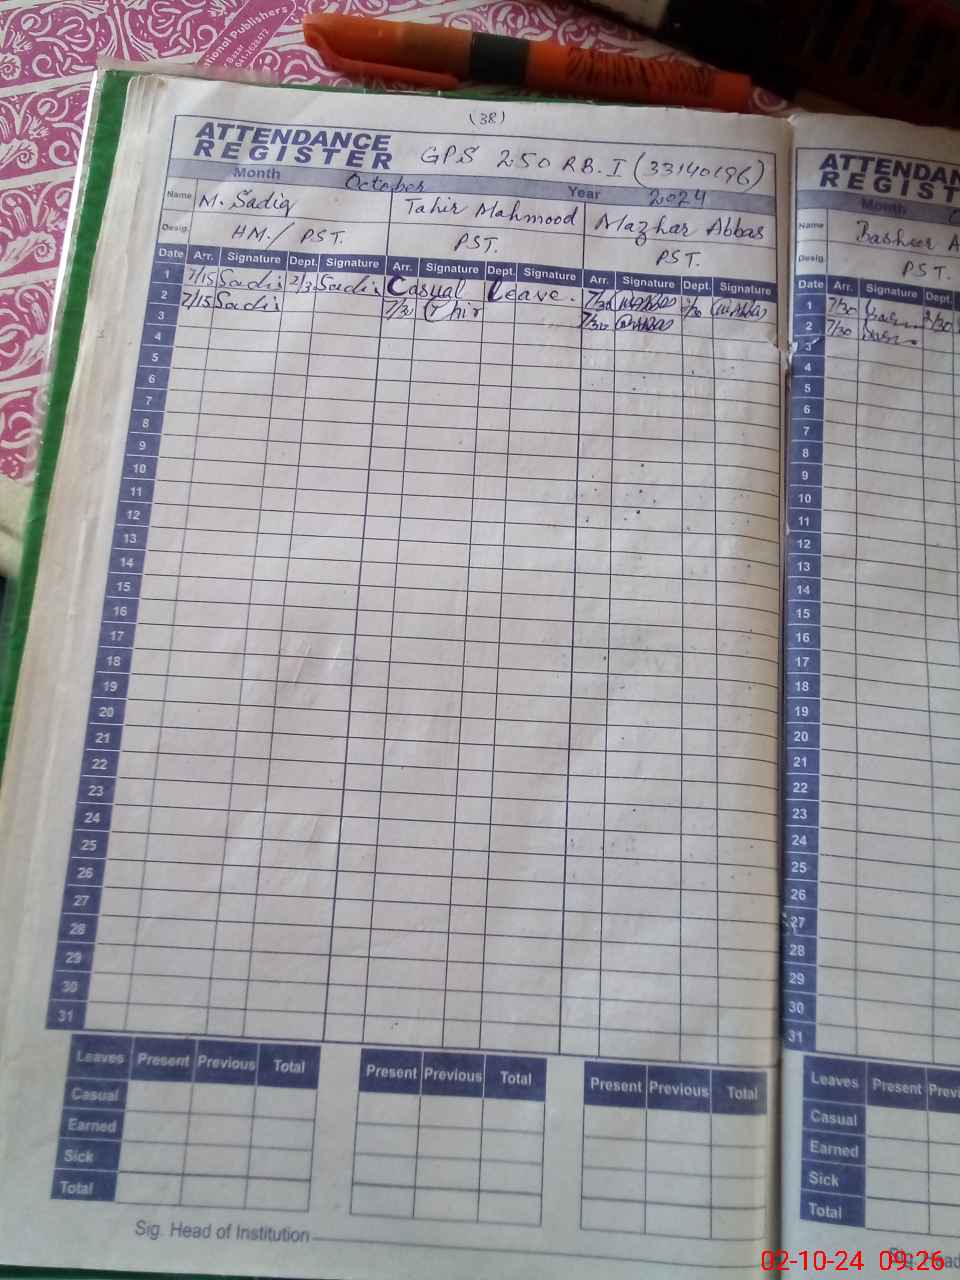 national Publishers
(38)
ATTENDANCE
REGISTER
GPS 250 RB. I (33140196)
Month October Year 2024
Name M. Sadiq Tahir Mahmood Mazhar Abbas
Desig. HM./ PST. PST. PST.
Date Arr. Signature Dept. Signature Arr. Signature Dept. Signature Arr. Signature Dept. Signature
1 7/15 Sadiq Sadiq Casual Leave. 7/30
2 7/15 Sadiq 7/30 7/30
3
4
5
6
7
8
9
10
11
12
13
14
15
16
17
18
19
20
21
22
23
24
25
26
27
28
29
30
31
Leaves Present Previous Total Present Previous Total Present Previous Total
Casual
Earned
Sick
Total
Sig. Head of Institution
ATTENDAN
REGIST
Month
Name Basheer A
Desig. PST.
Date Arr. Signature Dept.
1 7/30 2/30
2 7/30
3
4
5
6
7
8
9
10
11
12
13
14
15
16
17
18
19
20
21
22
23
24
25
26
27
28
29
30
31
Leaves Present Previ
Casual
Earned
Sick
Total
Sig. Head
02-10-24 09:26